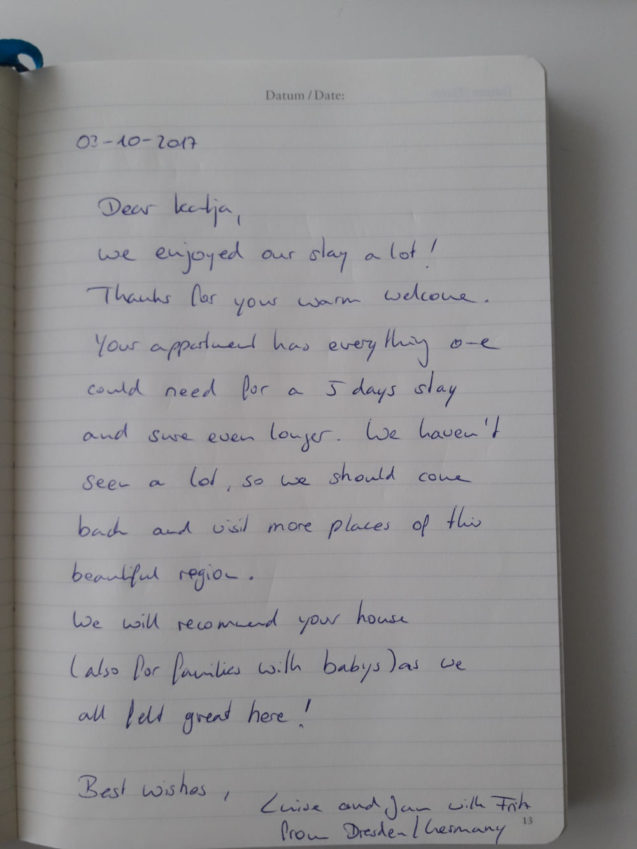 Datum / Date:
03-10-2017
Dear Katja,
we enjoyed our stay a lot!
Thanks for your warm welcome.
Your appartment has everything one
could need for a 5 days stay
and sure even longer. We haven't
seen a lot, so we should come
back and visit more places of this
beautiful region.
We will recommend your house
(also for families with babys) as we
all felt great here!
Best wishes,
Luise and Jan with Fritz
from Dresden/Germany
13